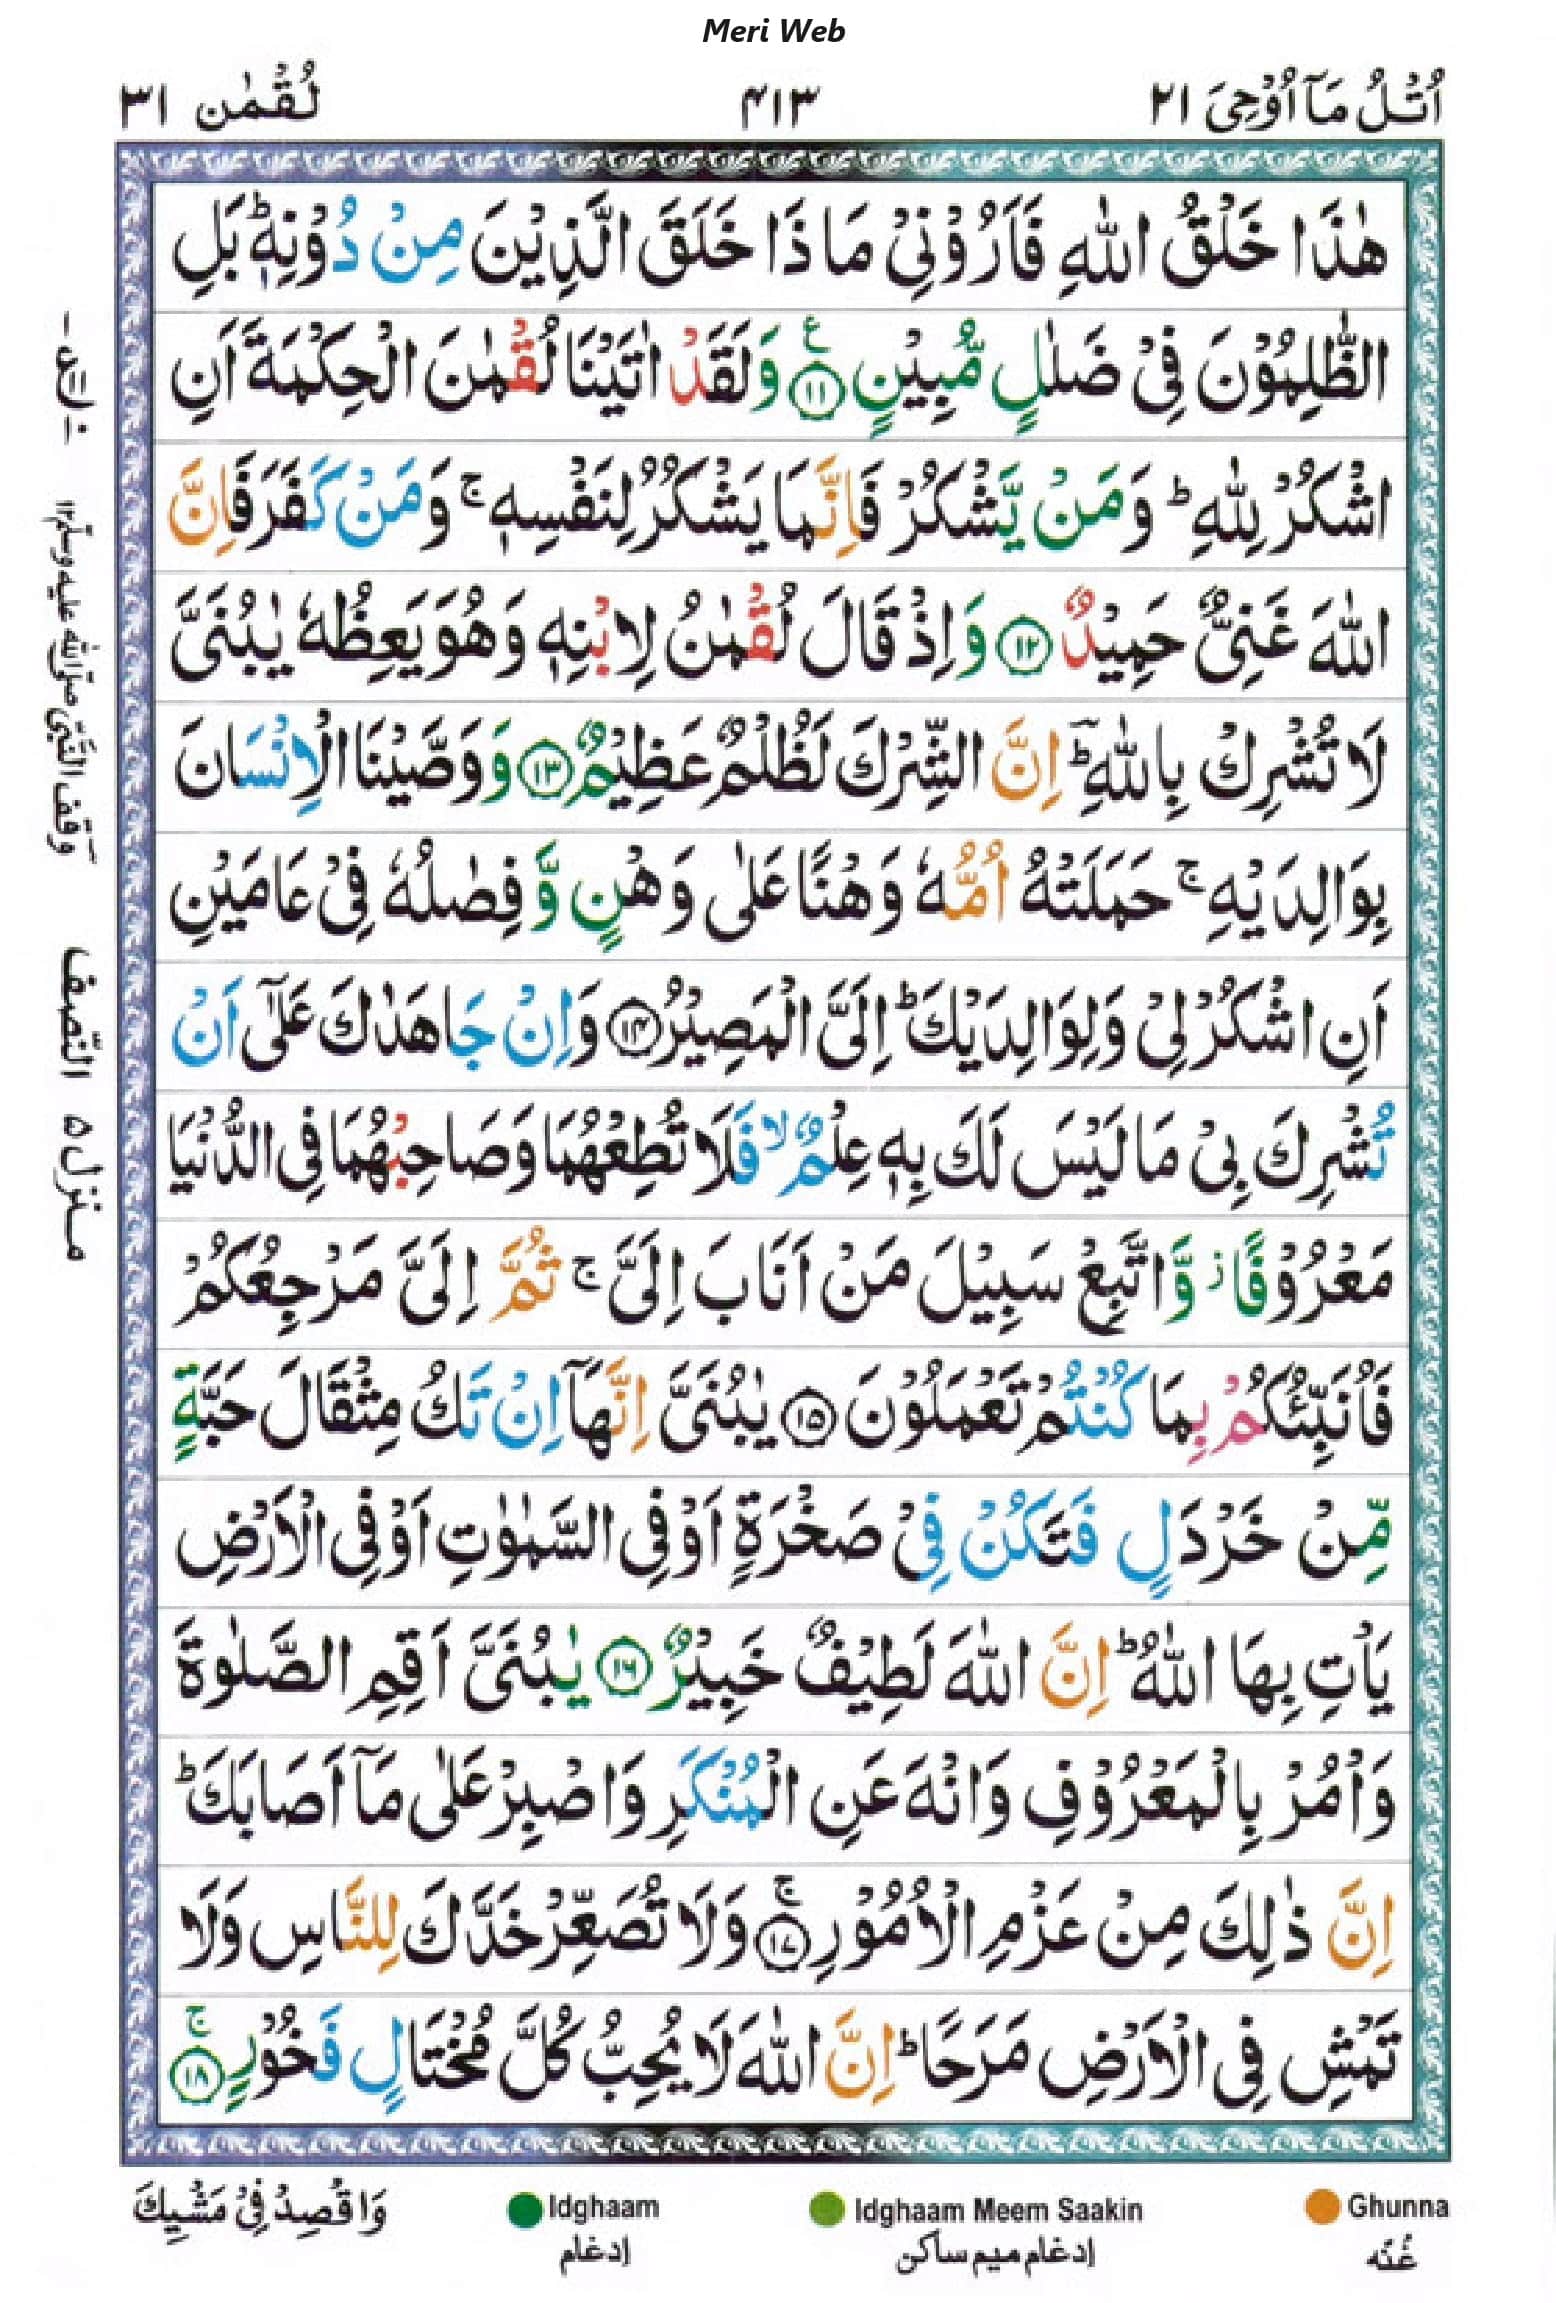 Meri Web
اُتْلُ مَآ اُوْحِیَ ۲۱
۴۱۳
لُقْمٰن ۳۱
هٰذَا خَلْقُ اللّٰهِ فَاَرُوْنِیْ مَا ذَا خَلَقَ الَّذِیْنَ مِنْ دُوْنِهٖ ؕ بَلِ
الظّٰلِمُوْنَ فِیْ ضَلٰلٍ مُّبِیْنٍ ۱۱ ع وَلَقَدْ اٰتَیْنَا لُقْمٰنَ الْحِكْمَةَ اَنِ
اشْكُرْ لِلّٰهِ ؕ وَمَنْ یَّشْكُرْ فَاِنَّمَا یَشْكُرُ لِنَفْسِهٖ ۚ وَمَنْ كَفَرَ فَاِنَّ
اللّٰهَ غَنِیٌّ حَمِیْدٌ ۱۲ وَاِذْ قَالَ لُقْمٰنُ لِابْنِهٖ وَهُوَ یَعِظُهٗ یٰبُنَیَّ
لَا تُشْرِكْ بِاللّٰهِ ؕ اِنَّ الشِّرْكَ لَظُلْمٌ عَظِیْمٌ ۱۳ وَوَصَّیْنَا الْاِنْسَانَ
بِوَالِدَیْهِ ۚ حَمَلَتْهُ اُمُّهٗ وَهْنًا عَلٰی وَهْنٍ وَّفِصٰلُهٗ فِیْ عَامَیْنِ
اَنِ اشْكُرْ لِیْ وَلِوَالِدَیْكَ ؕ اِلَیَّ الْمَصِیْرُ ۱۴ وَاِنْ جَاهَدٰكَ عَلٰۤی اَنْ
تُشْرِكَ بِیْ مَا لَیْسَ لَكَ بِهٖ عِلْمٌ ۙ فَلَا تُطِعْهُمَا وَصَاحِبْهُمَا فِی الدُّنْیَا
مَعْرُوْفًا ؗ وَّاتَّبِعْ سَبِیْلَ مَنْ اَنَابَ اِلَیَّ ۚ ثُمَّ اِلَیَّ مَرْجِعُكُمْ
فَاُنَبِّئُكُمْ بِمَا كُنْتُمْ تَعْمَلُوْنَ ۱۵ یٰبُنَیَّ اِنَّهَاۤ اِنْ تَكُ مِثْقَالَ حَبَّةٍ
مِّنْ خَرْدَلٍ فَتَكُنْ فِیْ صَخْرَةٍ اَوْ فِی السَّمٰوٰتِ اَوْ فِی الْاَرْضِ
یَاْتِ بِهَا اللّٰهُ ؕ اِنَّ اللّٰهَ لَطِیْفٌ خَبِیْرٌ ۱۶ یٰبُنَیَّ اَقِمِ الصَّلٰوةَ
وَاْمُرْ بِالْمَعْرُوْفِ وَانْهَ عَنِ الْمُنْكَرِ وَاصْبِرْ عَلٰی مَاۤ اَصَابَكَ ؕ
اِنَّ ذٰلِكَ مِنْ عَزْمِ الْاُمُوْرِ ۱۷ ۚ وَلَا تُصَعِّرْ خَدَّكَ لِلنَّاسِ وَلَا
تَمْشِ فِی الْاَرْضِ مَرَحًا ؕ اِنَّ اللّٰهَ لَا یُحِبُّ كُلَّ مُخْتَالٍ فَخُوْرٍ ۱۸ ۚ
وقف النبی صلی اللہ علیه وسلم ۱۲
النّصف
منزل ۵
Ghunna
غُنّه
Idghaam Meem Saakin
إدغام میم ساکن
Idghaam
إدغام
وَاقْصِدْ فِیْ مَشْیِكَ